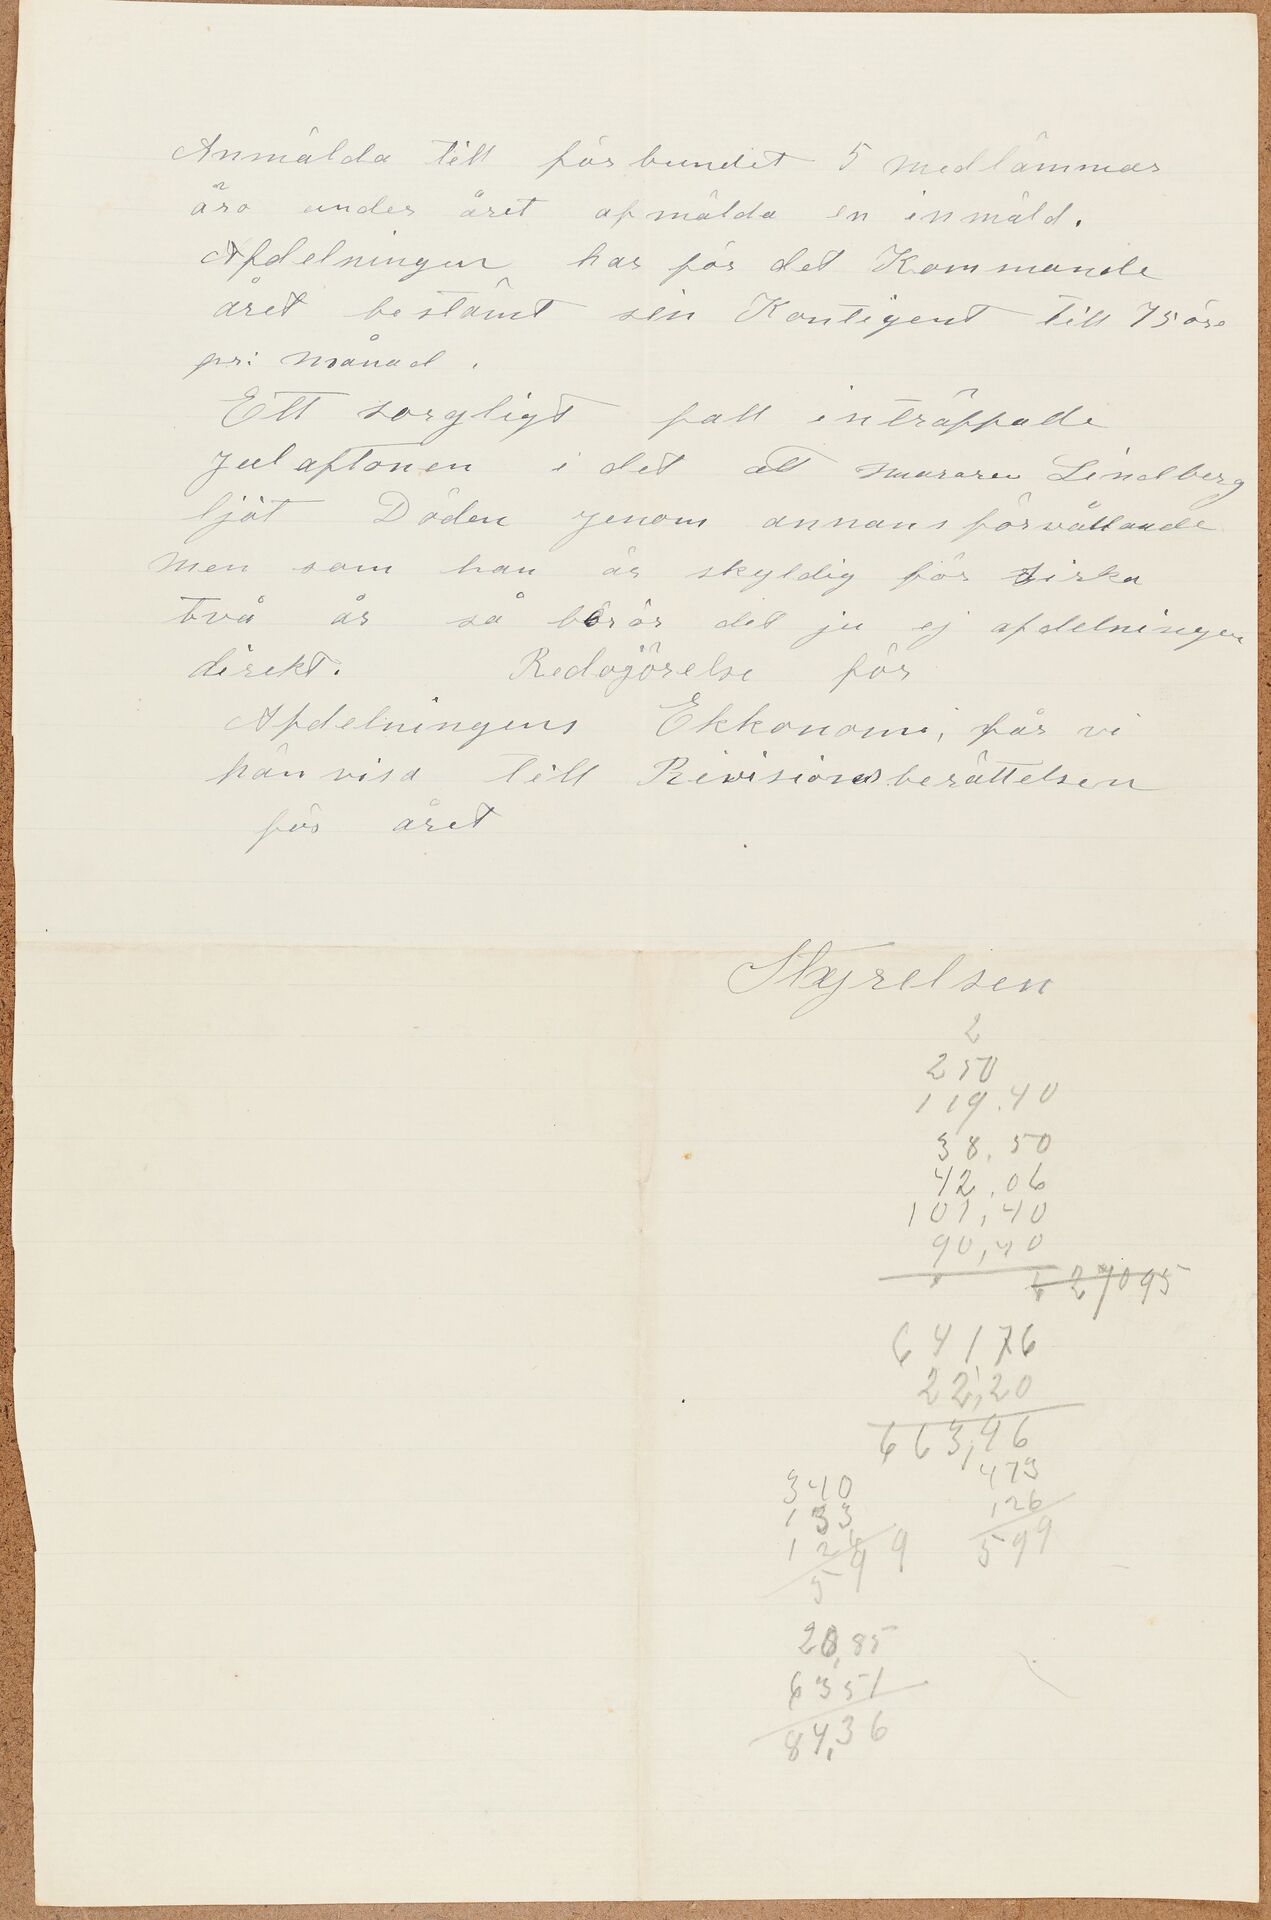 Anmälda till förbundet 5 medlämmar
äro under året afmälda en inmäld.
Afdelningen har för det Kommande
året bestämt sin Kontigent till 75 öre
pr: månad.
Ett sorgligt fall inträffade
Julaftonen i det att muraren Lindberg
ljöt Döden genom annans förvållande
men som han är skyldig för sirka
två år så börör det ju ej afdelningen
direkt. Redogörelse för
Afdelningens Ekkonomi, får vi
hänvisa till Rivisionsberättelsen
för året
Styrelsen
2
250
119.40
38,50
42,06
101,40
90,40
627095
64176
22,20
663,96
340
133
126
599
473
126
599
20,85
6351
84,36